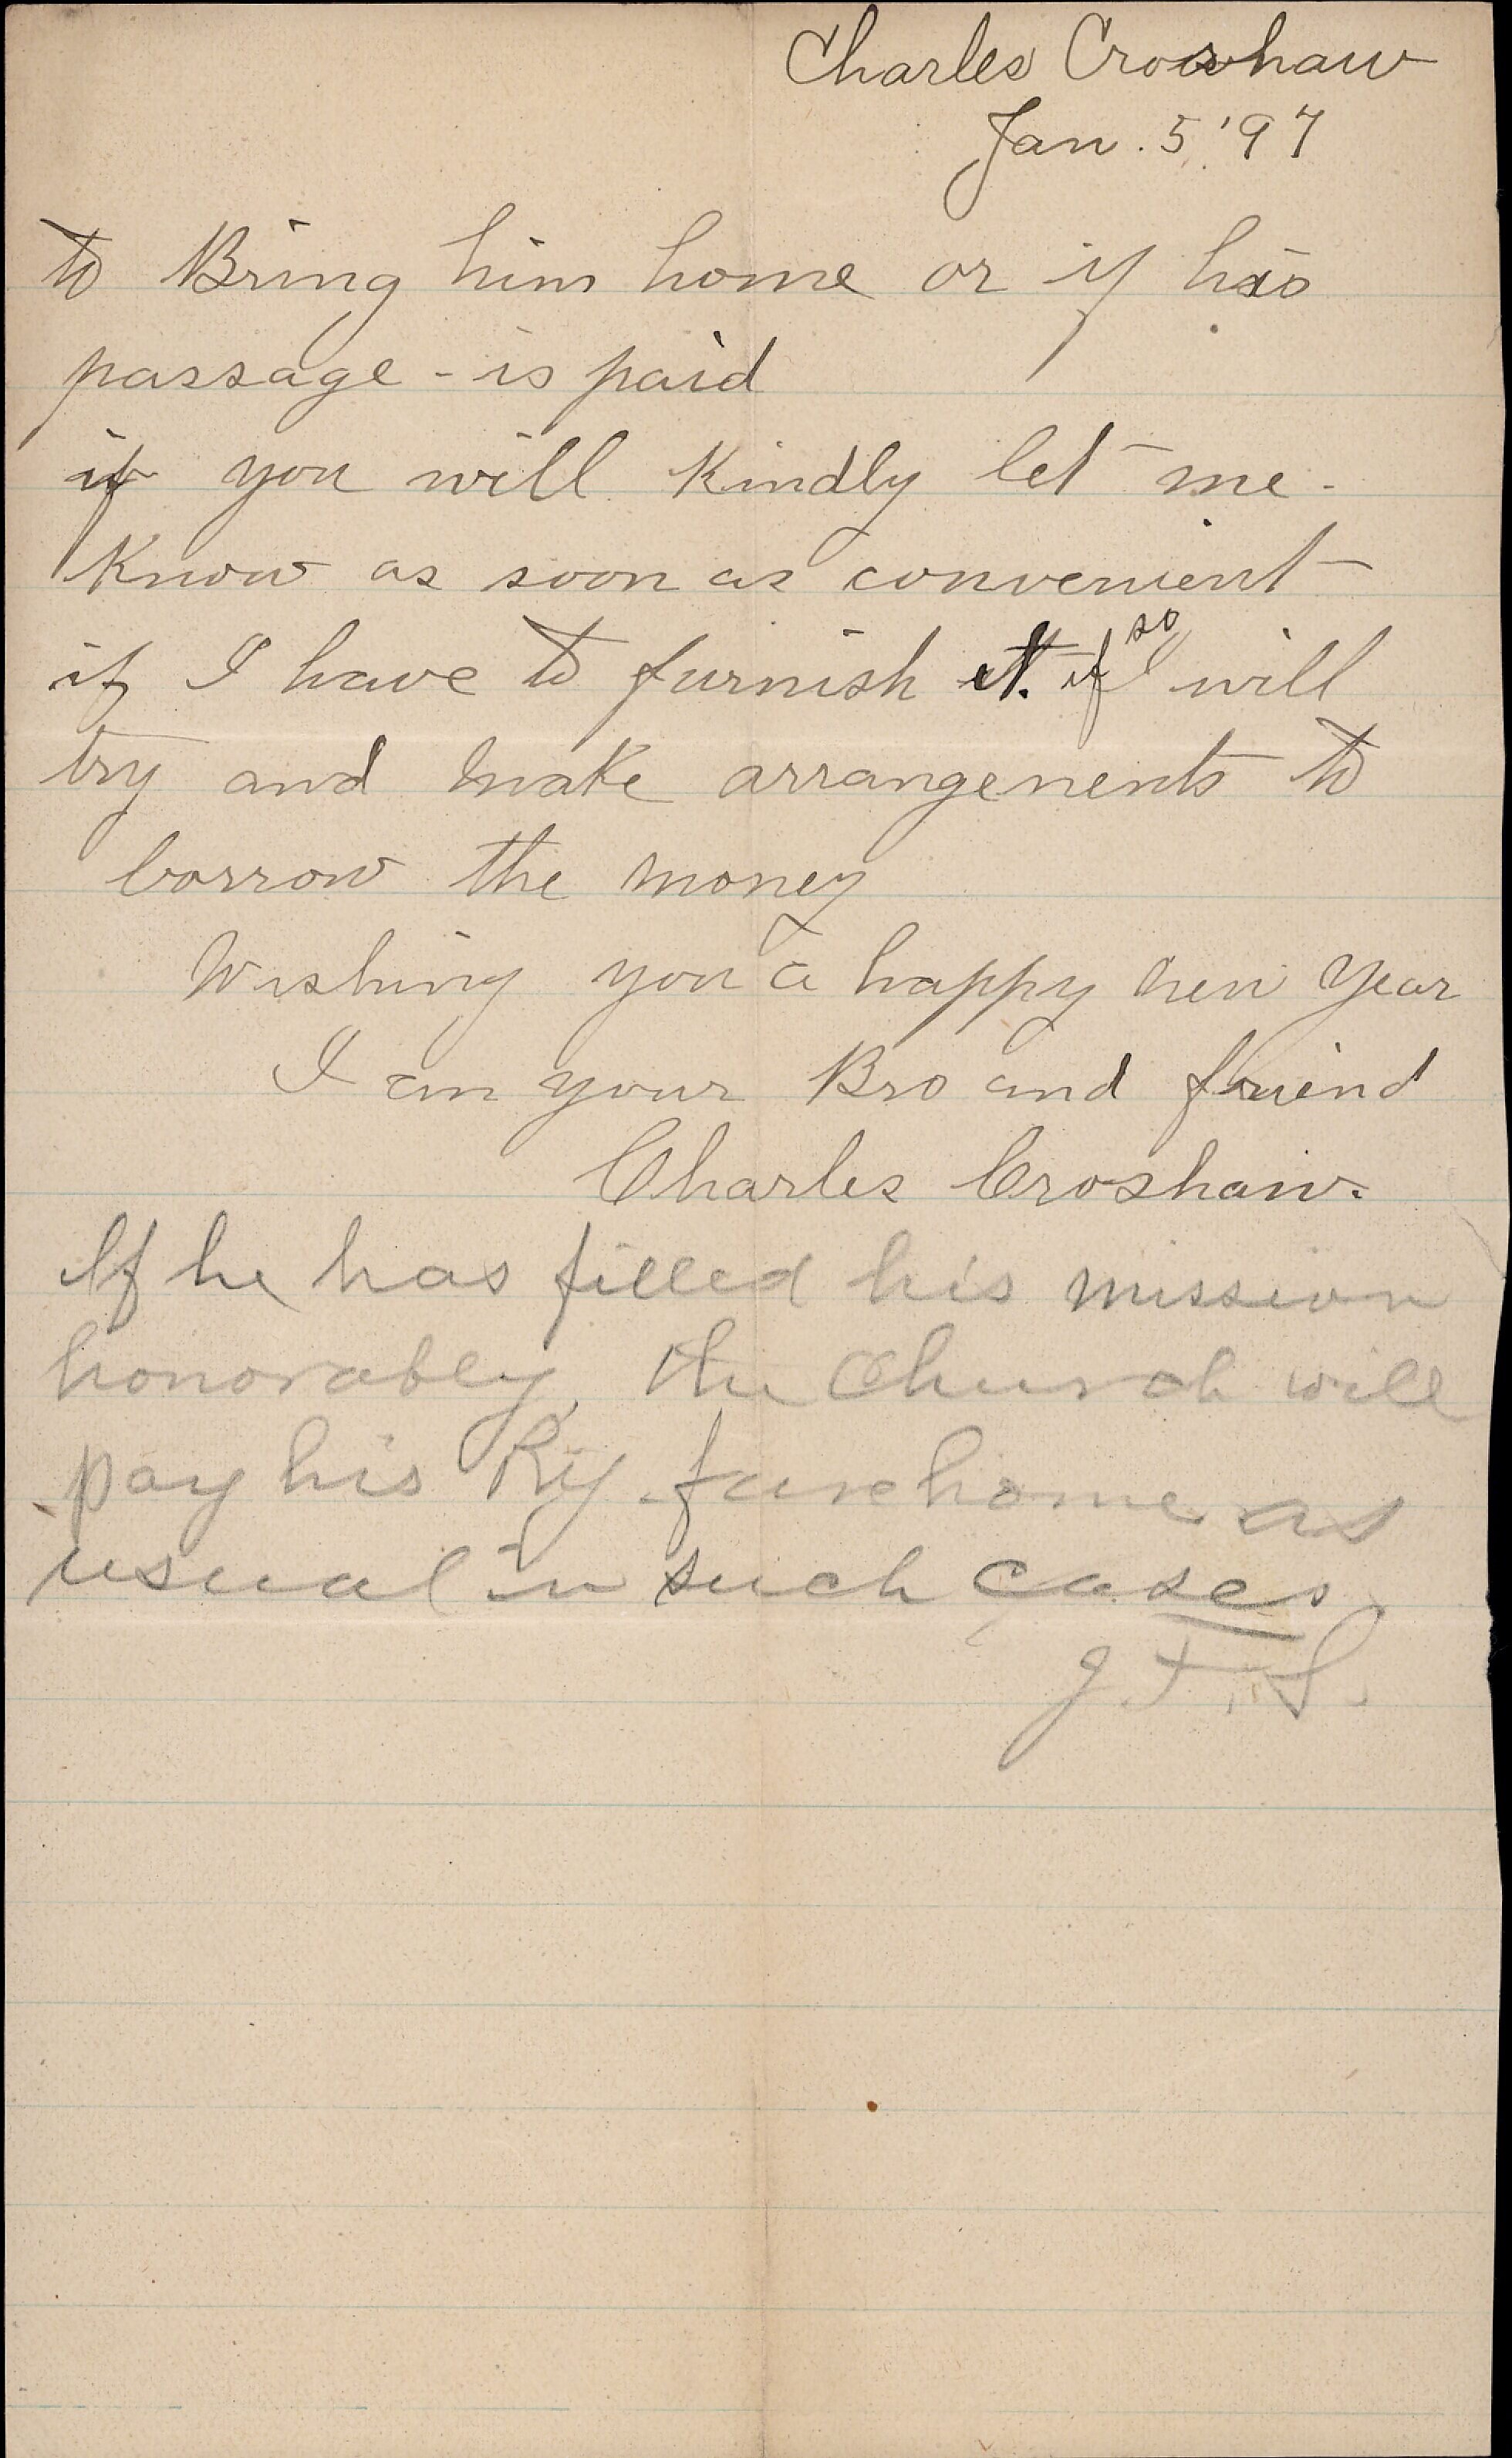 Charles Crowshaw
Jan. 5 '97
to Bring him home or if his
passage - is paid
if you will Kindly let me -
Know as soon as convenient
if I have to furnish it. if so I will
try and make arrangements to
borrow the money
Wishing you a happy new Year
I am your Bro and friend
Charles Croshaw.
If he has filled his mission
honorably, the Church will
pay his Ry fare home as
usual in such cases
J. F. S.